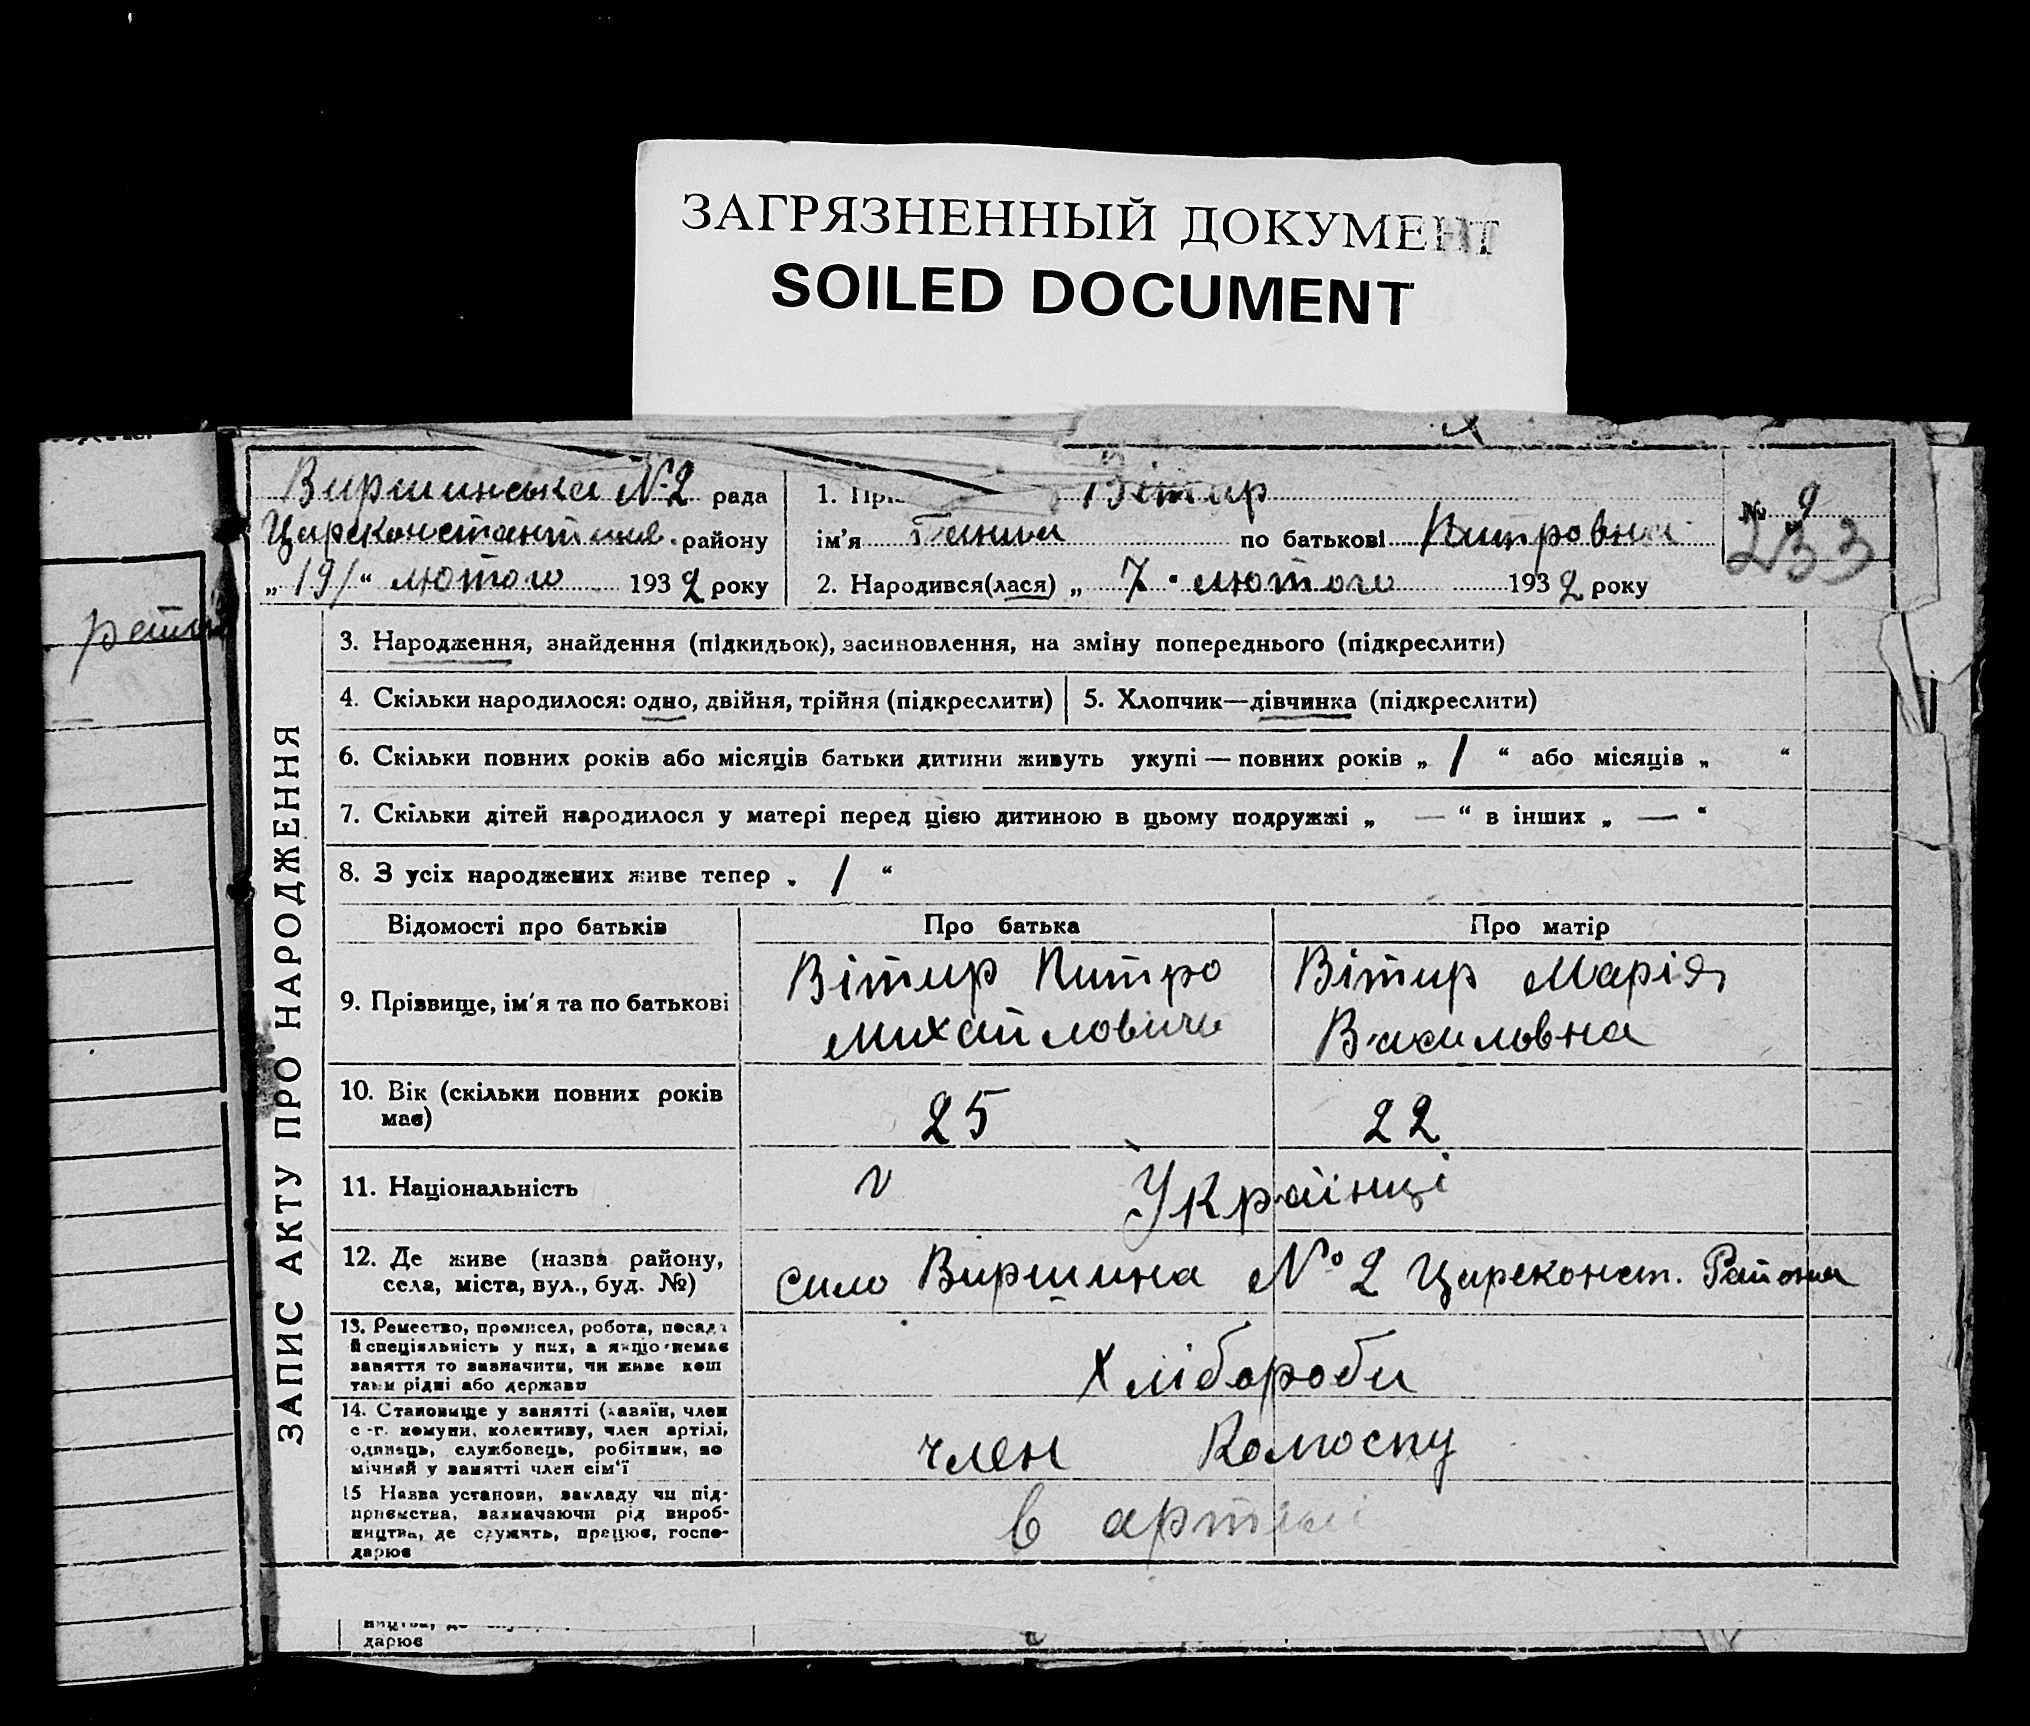 ЗАГРЯЗНЕННЫЙ ДОКУМЕНТ
SOILED DOCUMENT
Виршинська № 2 рада
Царсконстантинов. району
„ 19 “ лютого 1932 року
1. Прі Вітир
ім'я Ганна по батькові Питровна
2. Народився(лася) „ 7 “ лютого 1932 року
№ 9
233
ЗАПИС АКТУ ПРО НАРОДЖЕННЯ
3. Народження, знайдення (підкидьок), засиновлення, на зміну попереднього (підкреслити)
4. Скільки народилося: одно, двійня, трійня (підкреслити)
5. Хлопчик—дівчинка (підкреслити)
6. Скільки повних років або місяців батьки дитини живуть укупі — повних років „ 1 “ або місяців „ “
7. Скільки дітей народилося у матері перед цією дитиною в цьому подружжі „ — “ в інших „ — “
8. З усіх народжених живе тепер „ 1 “
Відомості про батьків
Про батька
Про матір
9. Прізвище, ім'я та по батькові
Вітир Питро
Михайлович
Вітир Марія
Василовна
10. Вік (скільки повних років
має)
25
22
11. Національність
Українці
12. Де живе (назва району,
села, міста, вул., буд. №)
Сило Виршина № 2 Царсконст. Района
13. Ремество, промисел, робота, посада
й спеціяльність у них, а якщо немає
заняття то зазначити, чи живе кош
тами рідні або держави
Хлібороби
14. Становище у занятті (хазяїн, член
с.-г. комуни, колективу, член артілі,
одинець, службовець, робітник, по
мічний у занятті член сім'ї
член Колгоспу
15 Назва установи, закладу чи під-
приємства, зазначаючи рід вироб-
ництва, де служить, працює, госпо-
дарює
в артилі
дарює